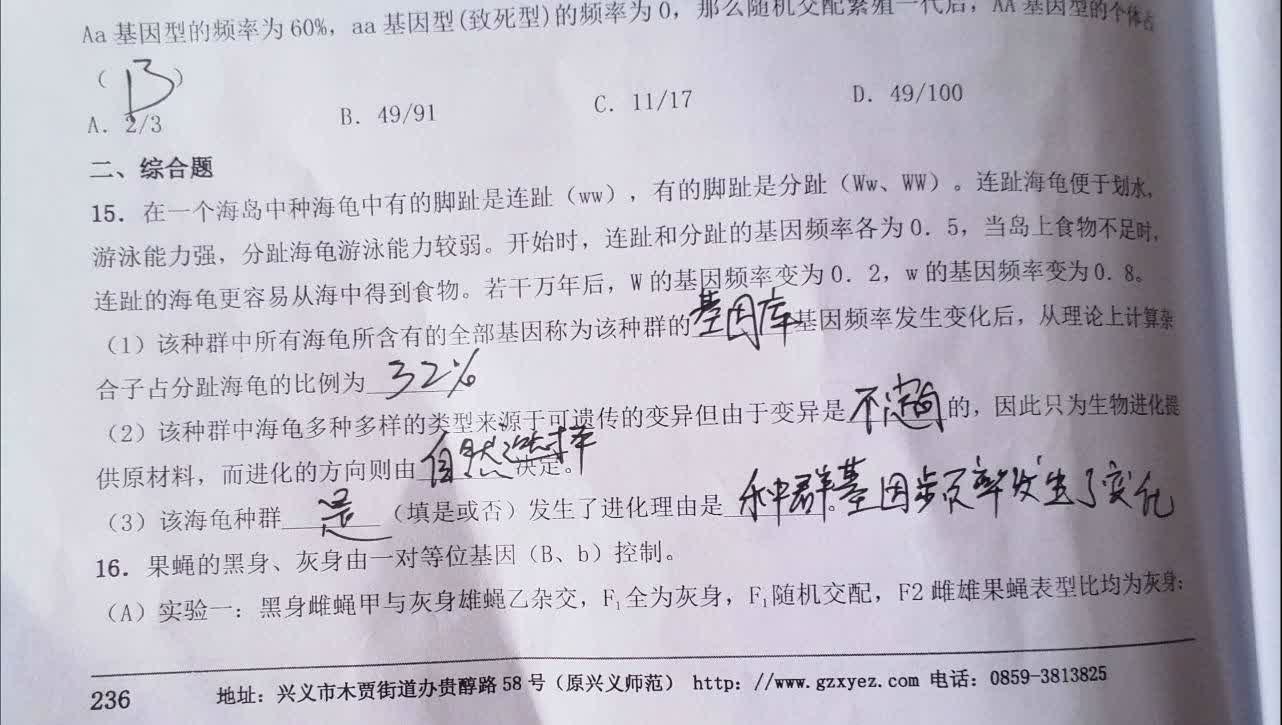 Aa 基因型的频率为 60%，aa 基因型(致死型)的频率为 0，那么随机交配繁殖一代后，AA 基因型的个体占
（ B ）
A. 2/3 B. 49/91 C. 11/17 D. 49/100
二、综合题
15. 在一个海岛中种海龟中有的脚趾是连趾（ww），有的脚趾是分趾（Ww、WW）。连趾海龟便于划水，
游泳能力强，分趾海龟游泳能力较弱。开始时，连趾和分趾的基因频率各为 0．5，当岛上食物不足时，
连趾的海龟更容易从海中得到食物。若干万年后，W 的基因频率变为 0．2，w 的基因频率变为 0．8。
（1）该种群中所有海龟所含有的全部基因称为该种群的 基因库 基因频率发生变化后，从理论上计算杂
合子占分趾海龟的比例为 32%
（2）该种群中海龟多种多样的类型来源于可遗传的变异但由于变异是 不定向 的，因此只为生物进化提
供原材料，而进化的方向则由 自然选择 决定。
（3）该海龟种群 是 （填是或否）发生了进化理由是 种群基因频率发生了变化 。
16. 果蝇的黑身、灰身由一对等位基因（B、b）控制。
（A）实验一：黑身雌蝇甲与灰身雄蝇乙杂交，F₁全为灰身，F₁随机交配，F2 雌雄果蝇表型比均为灰身：
236 地址：兴义市木贾街道办贵醇路 58 号（原兴义师范） http：//www.gzxyez.com 电话：0859-3813825